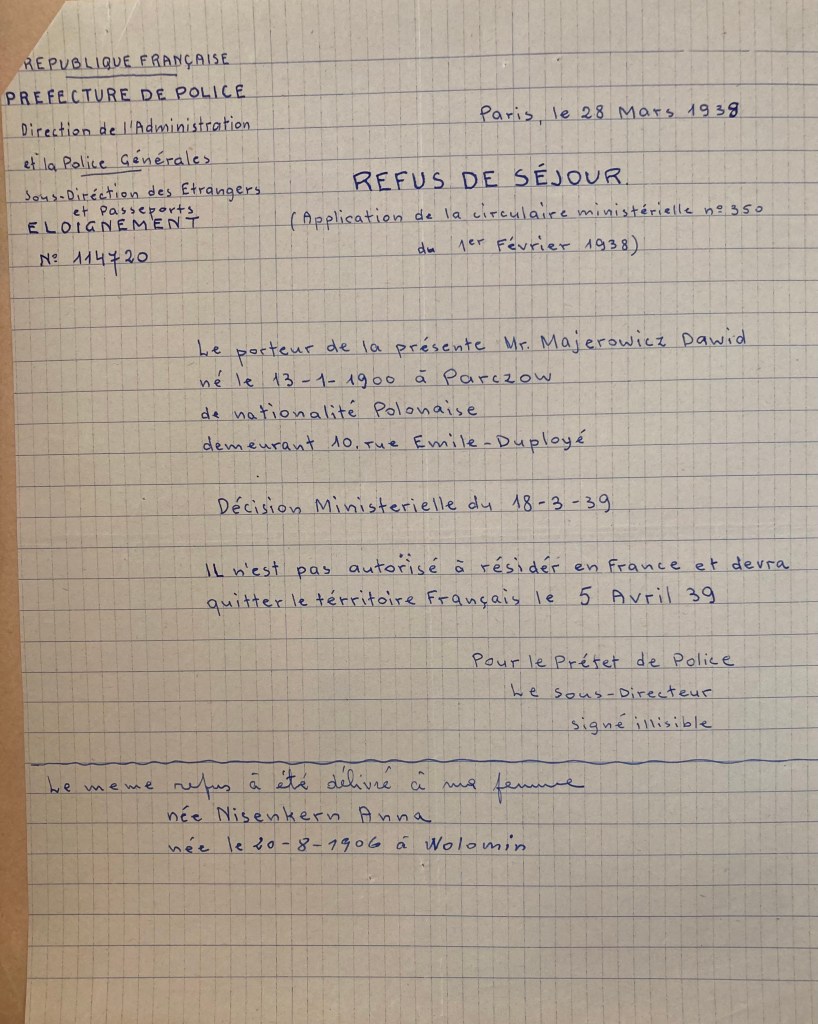 REPUBLIQUE FRANÇAISE
PREFECTURE DE POLICE
Direction de l'Administration
et la Police Générales
Sous-Diréction des Etrangers
et Passeports
ELOIGNEMENT
Nº 114720
Paris, le 28 Mars 1938
REFUS DE SÉJOUR.
(Application de la circulaire ministérielle nº 350
du 1er Février 1938)
Le porteur de la présente Mr. Majerowicz Dawid
né le 13-1-1900 à Parczow
de nationalité Polonaise
demeurant 10. rue Emile-Duployé
Décision Ministerielle du 18-3-39
IL n'est pas autorisé à résidér en France et devra
quitter le térritoire Français le 5 Avril 39
Pour le Préfet de Police
Le Sous-Directeur
signé illisible
Le meme refus à été délivré à ma femme
née Nisenkern Anna
née le 20-8-1906 à Wolomin